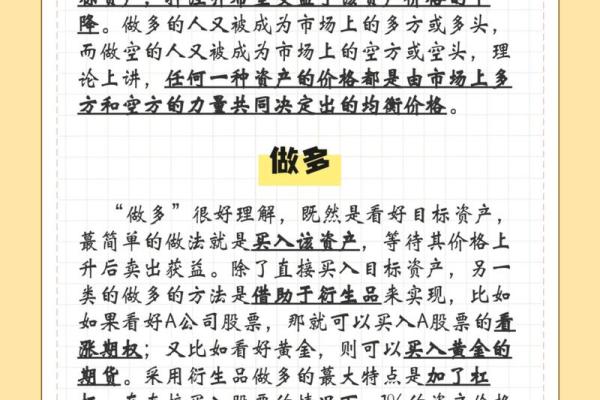 降。做多的人又被成为市场上的多方或多头，
而做空的人又被成为市场上的空方或空头，理
论上讲，任何一种资产的价格都是由市场上多
方和空方的力量共同决定出的均衡价格。
做多
“做多”很好理解，既然是看好目标资产，
最简单的做法就是买入该资产，等待其价格上
升后卖出获益。除了直接买入目标资产，另一
类的做多的方法是借助于衍生品来实现，比如
如果看好A公司股票，那就可以买入A股票的看
涨期权；又比如看好黄金，则可以买入黄金的
期货。采用衍生品做多的最大特点是加了杠